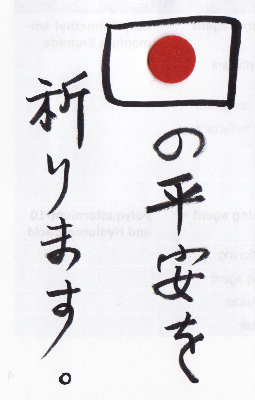 の平安を
祈ります。